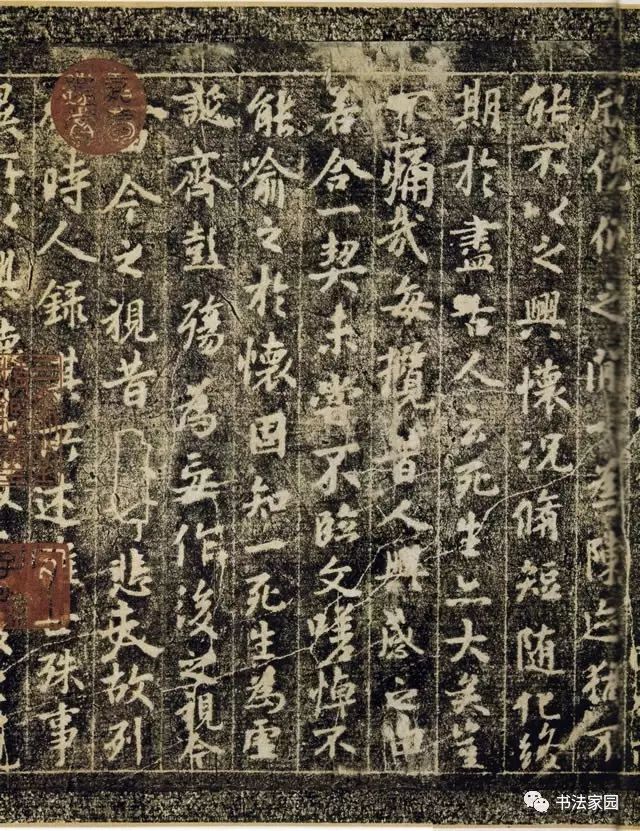 欣俛仰之間以為陳迹猶不
能不以之興懷況脩短随化終
期於盡古人云死生亦大矣豈
不痛哉每攬昔人興感之由
若合一契未嘗不臨文嗟悼不
能喻之於懷固知一死生為虛
誕齊彭殤為妄作後之視今
今之視昔悲夫故列
時人錄其所述雖世殊事
異所以興懷
书法家园